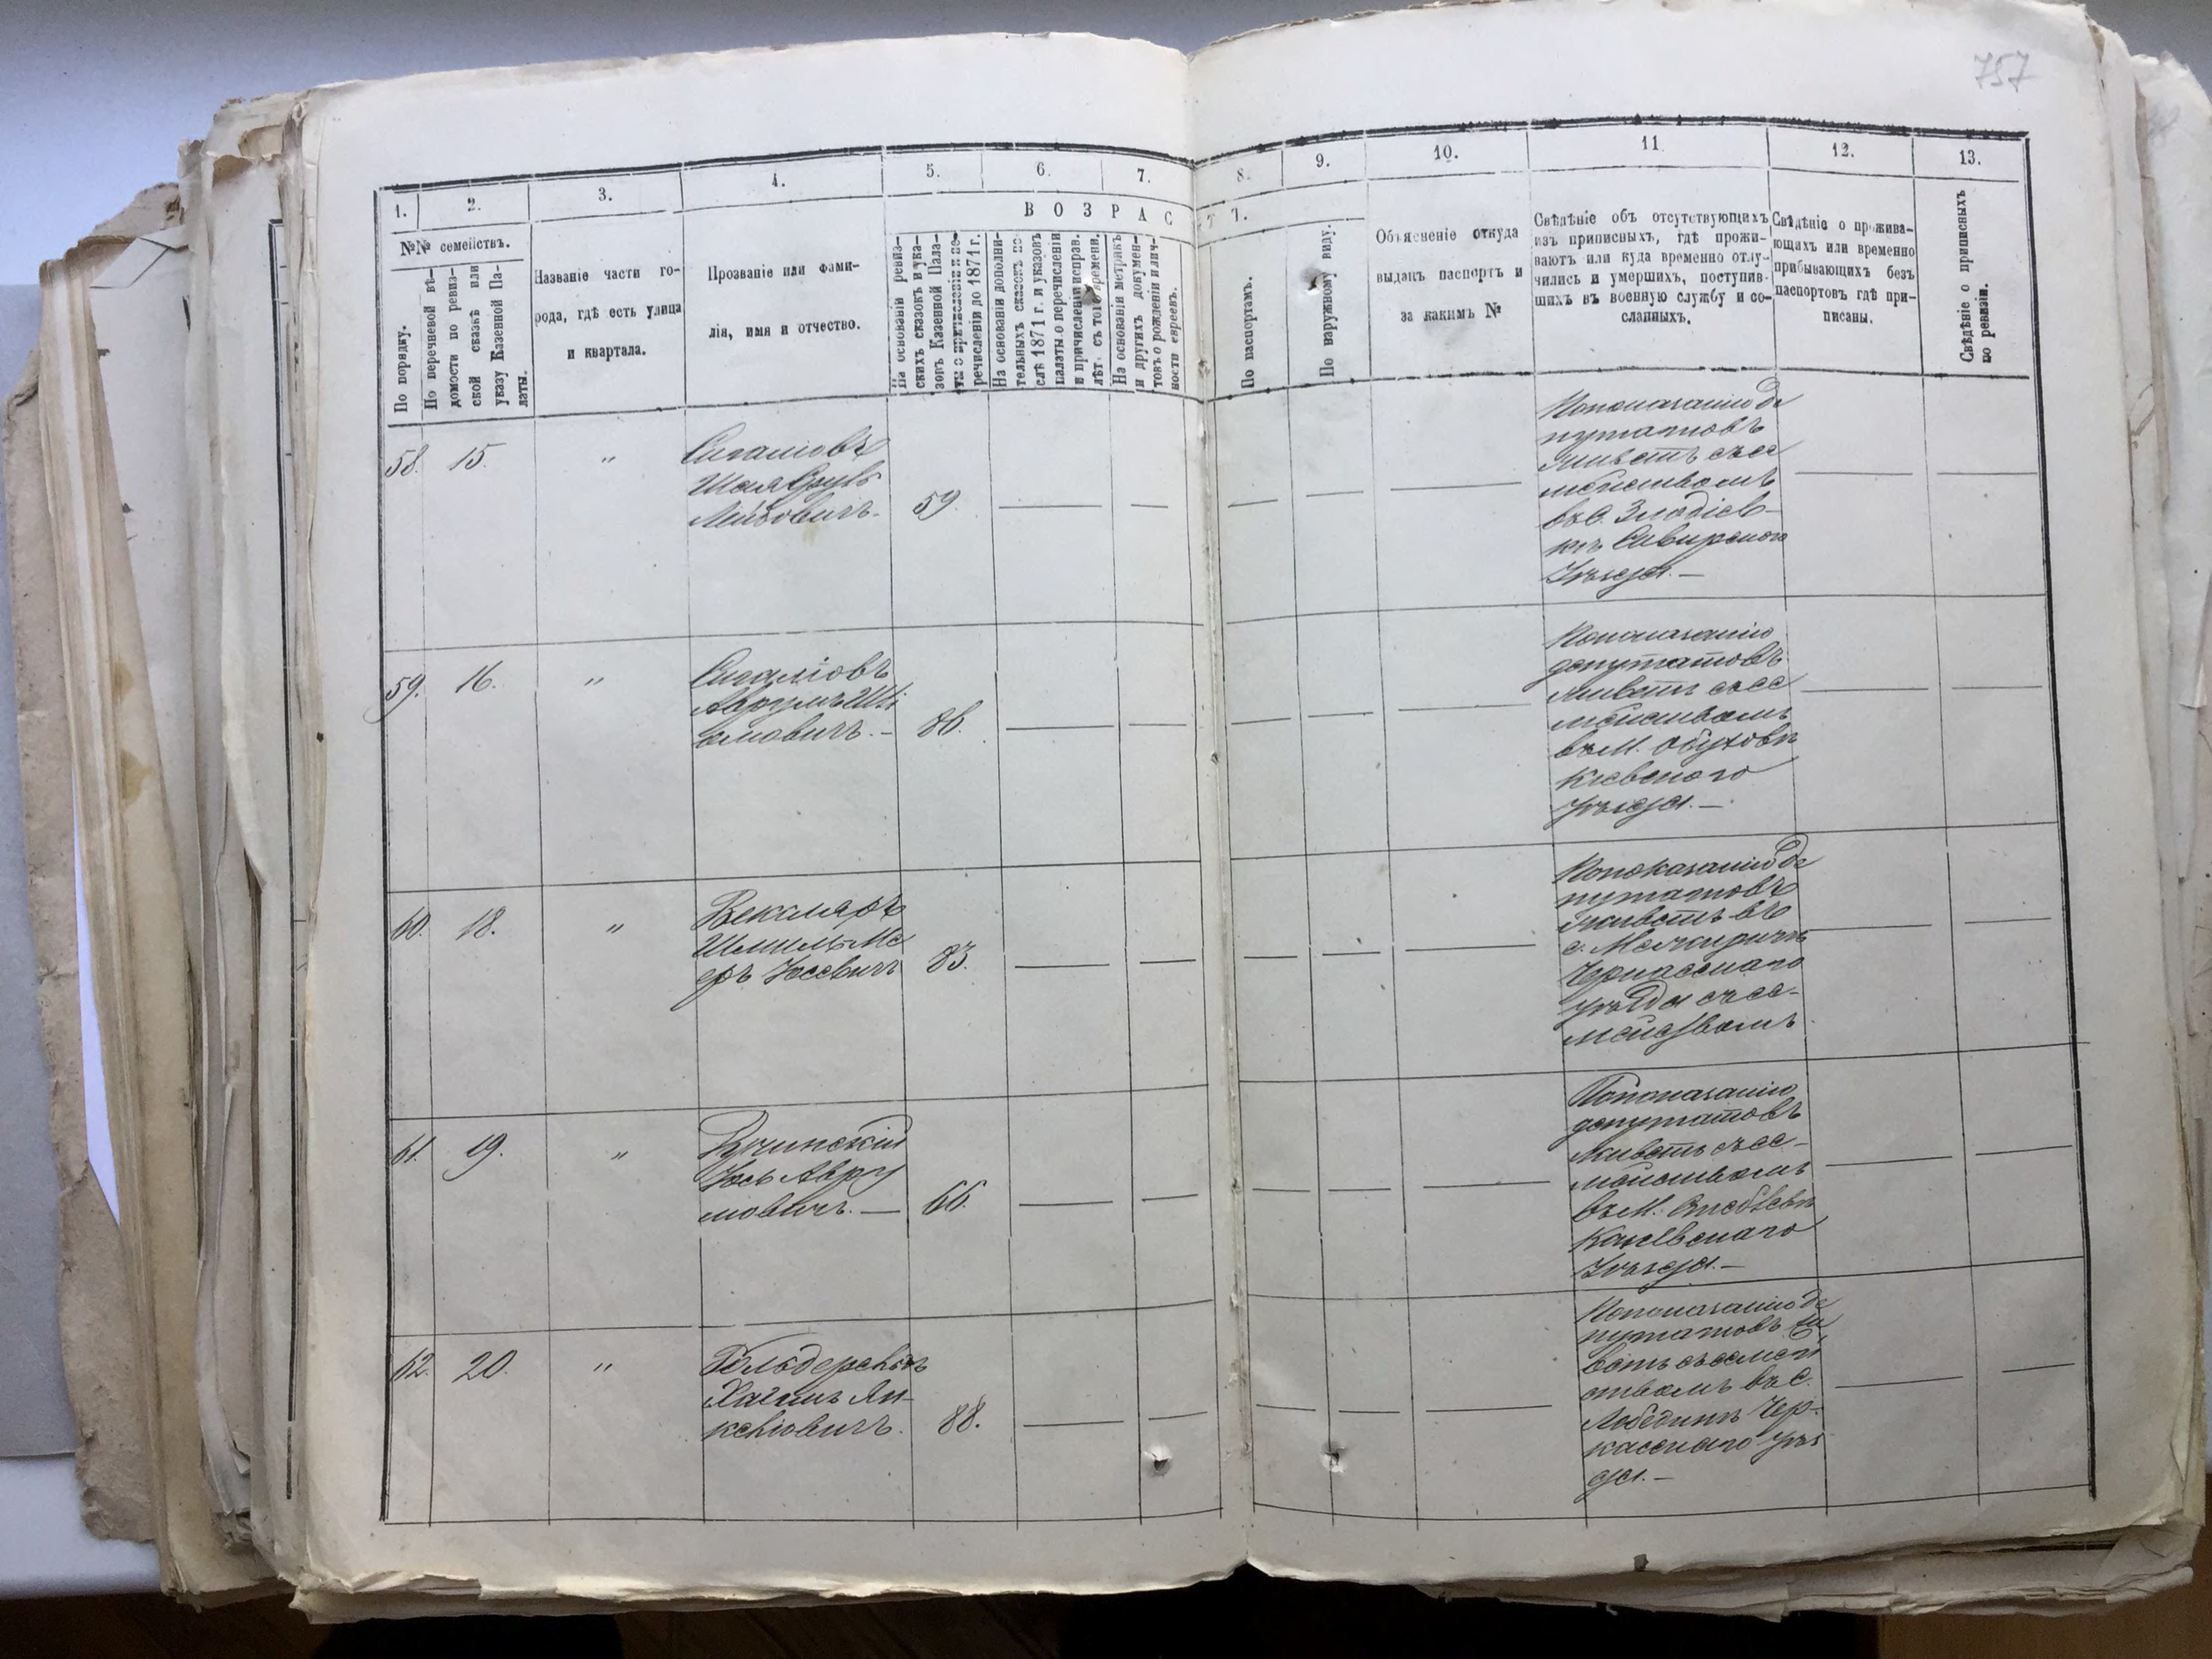 757
1. 2. 3. 4. 5. 6. 7. 8. 9. 10. 11. 12. 13.
В О З Р А С Т Ъ.
№№ семействъ.
По порядку.
По перечневой вѣ-
домости по ревиз-
ской сказкѣ или
указу Казенной Па-
латы.
Названіе части го-
рода, гдѣ есть улица
и квартала.
Прозваніе или фами-
лія, имя и отчество.
На основаніи ревиз-
скихъ сказокъ и ука-
зовъ Казенной Пала-
ты о причисленіи и пе-
речисленіи до 1871 г.
На основаніи дополни-
тельныхъ сказокъ по-
слѣ 1871 г. и указовъ
палаты о перечисленіи
и причисленіи исправ.
лѣтъ съ того времени.
На основаніи метрикъ
и другихъ докумен-
товъ о рожденіи и лич-
ности евреевъ.
По паспортамъ.
По наружному виду.
Объясненіе откуда
выданъ паспортъ и
за какимъ №
Свѣдѣніе объ отсутствующихъ
изъ приписныхъ, гдѣ прожи-
ваютъ или куда временно отлу-
чились и умершихъ, поступив-
шихъ въ военную службу и со-
сланныхъ.
Свѣдѣніе о прожива-
ющихъ или временно
прибывающихъ безъ
паспортовъ гдѣ при-
писаны.
Свѣдѣніе о приписныхъ
по ревизіи.
58. 15. "
Сигаловъ
Шая Сруль
Лейбовичъ. 59.
По показанію де
путатовъ
живетъ съ се
мействомъ
въ С. Злодіев-
кѣ
Уѣзда.—
59. 16. "
Сигаловъ
Аврумъ Шлі
омовичъ.— 86.
По показанію
депутатовъ
живетъ съ се
мействомъ
въ М. Обуховѣ
Кіевского
Уѣзда.—
60. 18. "
Векслеръ
Шмиль Ме
еръ Іосевичъ 83.
По показанію де
путатовъ
живетъ въ
с. Межиричѣ
Черкасскаго
уѣзда съ се-
мействомъ
61. 19. "
Бучинскій
Іось Авру
мовичъ.— 66.
По показанію
депутатовъ
живетъ съ се-
мействомъ
въ М. Степ
Каневскаго
Уѣзда.—
62. 20. "
Хаимъ Ян-
келіовичъ. 88.
По показанію де
путатовъ жи
ветъ съ семей
ствомъ въ С.
Лебединѣ Чер-
касскаго уѣз
да.—